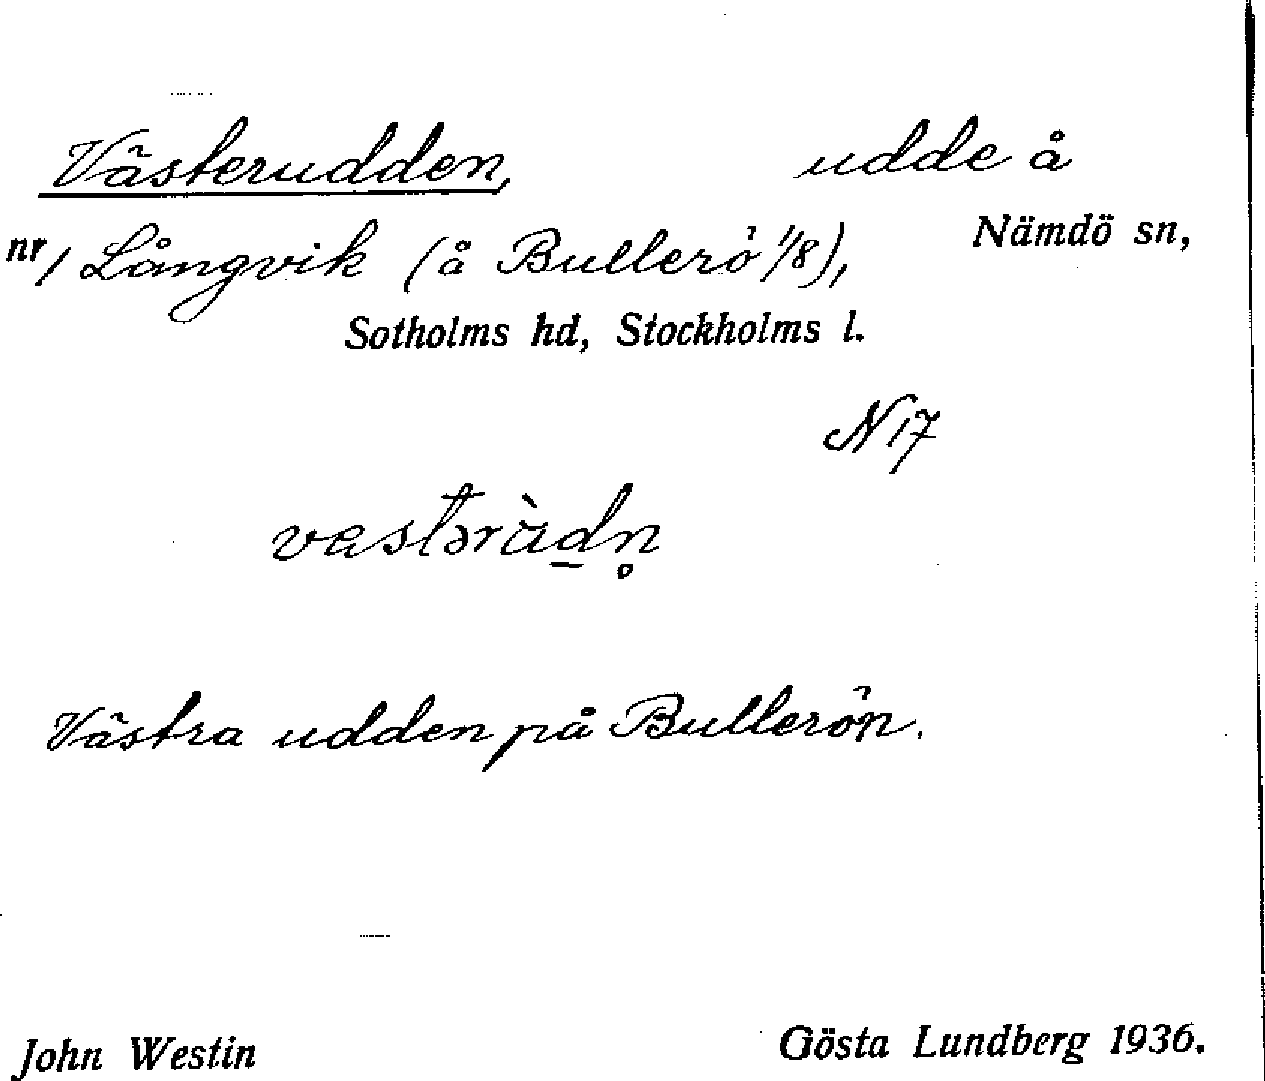 Västerudden, udde å
nr/ Långvik (å Bullerö 1/8), Nämdö sn,
Sotholms hd, Stockholms l.
N 17
Västra udden på Bullerön.
John Westin Gösta Lundberg 1936.